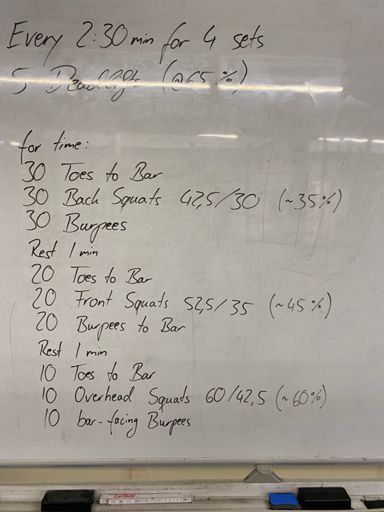 Every 2:30 min for 4 sets
5 Deadlift (~65%)
for time:
30 Toes to Bar
30 Back Squats 42,5/30 (~35%)
30 Burpees
Rest 1 min
20 Toes to Bar
20 Front Squats 52,5/35 (~45%)
20 Burpees to Bar
Rest 1 min
10 Toes to Bar
10 Overhead Squats 60/42,5 (~60%)
10 bar-facing Burpees